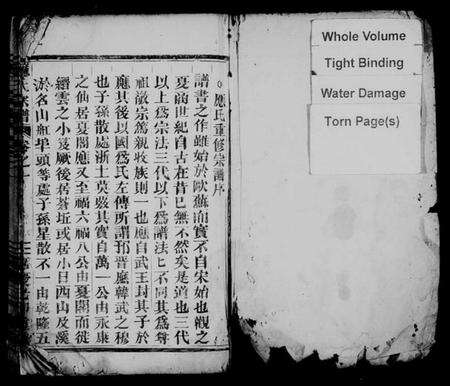 Whole Volume
Tight Binding
Water Damage
Torn Page(s)
應氏重修宗譜序
譜書之作雖始於歐蘇而實不自宋始也觀之
夏商世紀自古在昔已無不然矣是道也三代
以上為宗法三代以下為譜法匕不同其為尊
祖敬宗篤親收族則一也應自武王封其子於
應其後以國為氏左傳所謂邘晋應韓武之穆
也子孫散處浙土莫發其實自萬一公由永康
之仙居夏閣應又至福六福八公由夏閣而徙
縉雲之小笈厥後居 坵或居小日西山及溪
淤名山紅 頭等處子孫星散不一由乾隆五